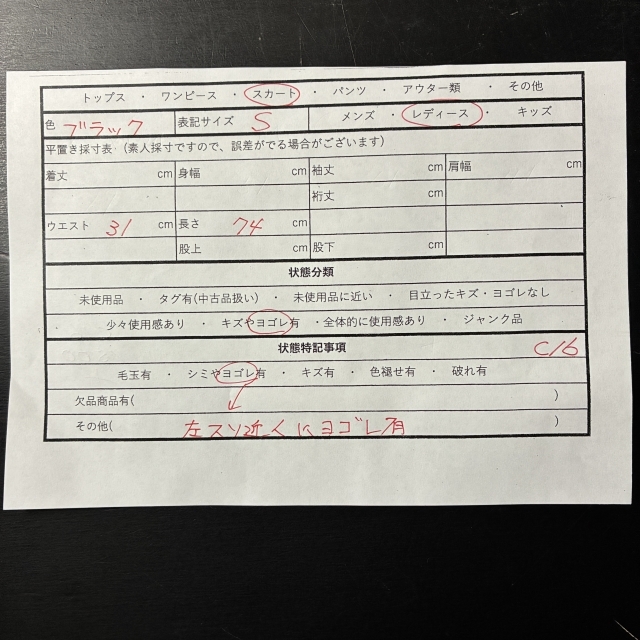 トップス ・ ワンピース ・ スカート ・ パンツ ・ アウター類 ・ その他
色 ブラック 表記サイズ S メンズ ・ レディース ・ キッズ
平置き採寸表 (素人採寸ですので、誤差がでる場合がございます)
着丈 cm 身幅 cm 袖丈 cm 肩幅 cm
裄丈 cm
ウエスト 31 cm 長さ 74 cm
股上 cm 股下 cm
状態分類
未使用品 ・ タグ有(中古品扱い) ・ 未使用品に近い ・ 目立ったキズ・ヨゴレなし
少々使用感あり ・ キズやヨゴレ有 ・全体的に使用感あり ・ ジャンク品
状態特記事項 C16
毛玉有 ・ シミやヨゴレ有 ・ キズ有 ・ 色褪せ有 ・ 破れ有
欠品商品有( )
その他( 左スソ近くにヨゴレ有 )